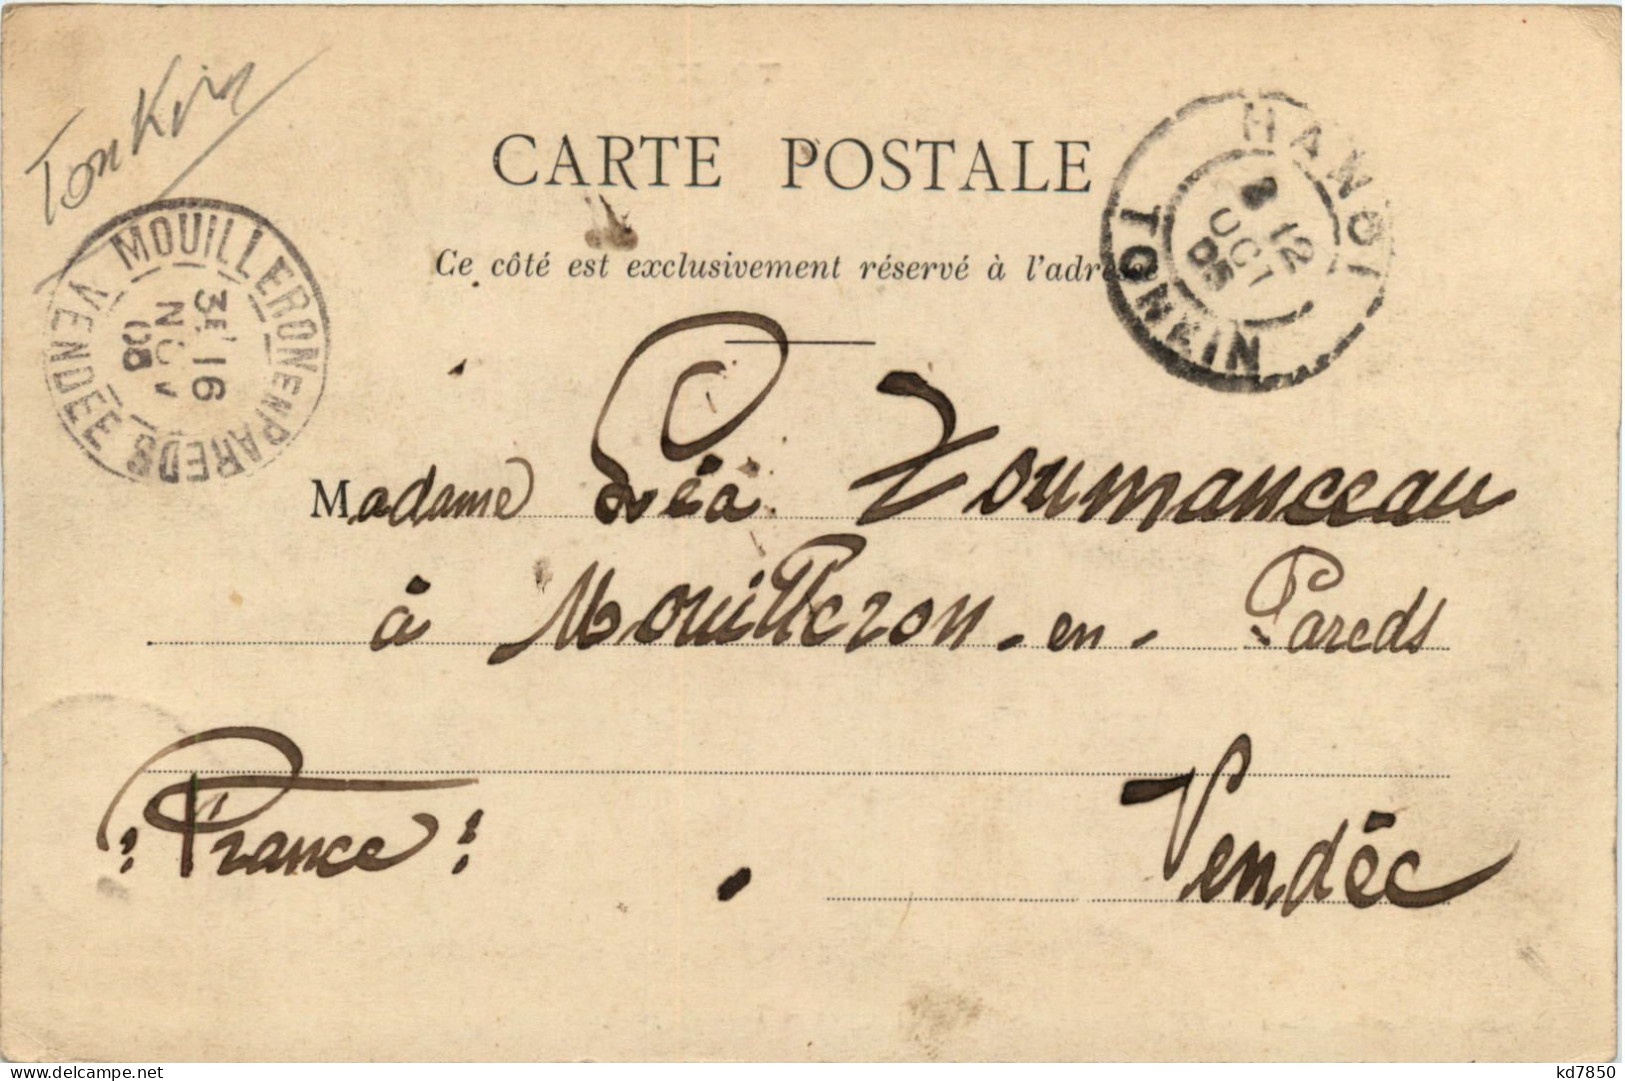 TonKin
CARTE POSTALE
Ce côté est exclusivement réservé à l'adresse
HANOI
12
OCT
05
TONKIN
MOUILLERON EN PAREDS
16
NOV
05
VENDÉE
Madame Léa
à Mouilleron-en-Pareds
Vendée
: France :
kd7850